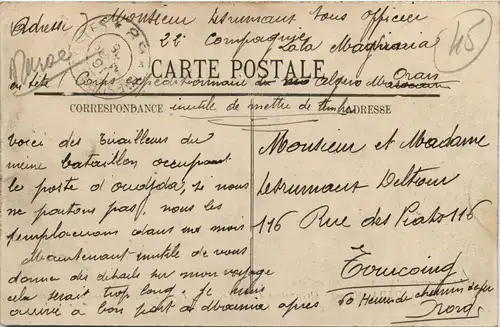 Adresse Monsieur Desrumaut Sous Officier
22e Compagnie Lala Maghnia
en tête Corps expéditionnaire Algéro Marocain Oran
45
CARTE POSTALE
CORRESPONDANCE inutile de mettre de timbre ADRESSE
Voici des tirailleurs du
même bataillon occupant
le poste d'oudjda, si nous
ne partons pas, nous les
remplacerons dans un mois
Maintenant inutile de vous
donner des détails sur mon voyage
cela serait trop long. Je suis
arrivé à bon port à Marnia après 60 Heures de chemin de fer
Monsieur et Madame
Desrumaut Deltour
116 Rue des Piats 116
Tourcoing
Nord